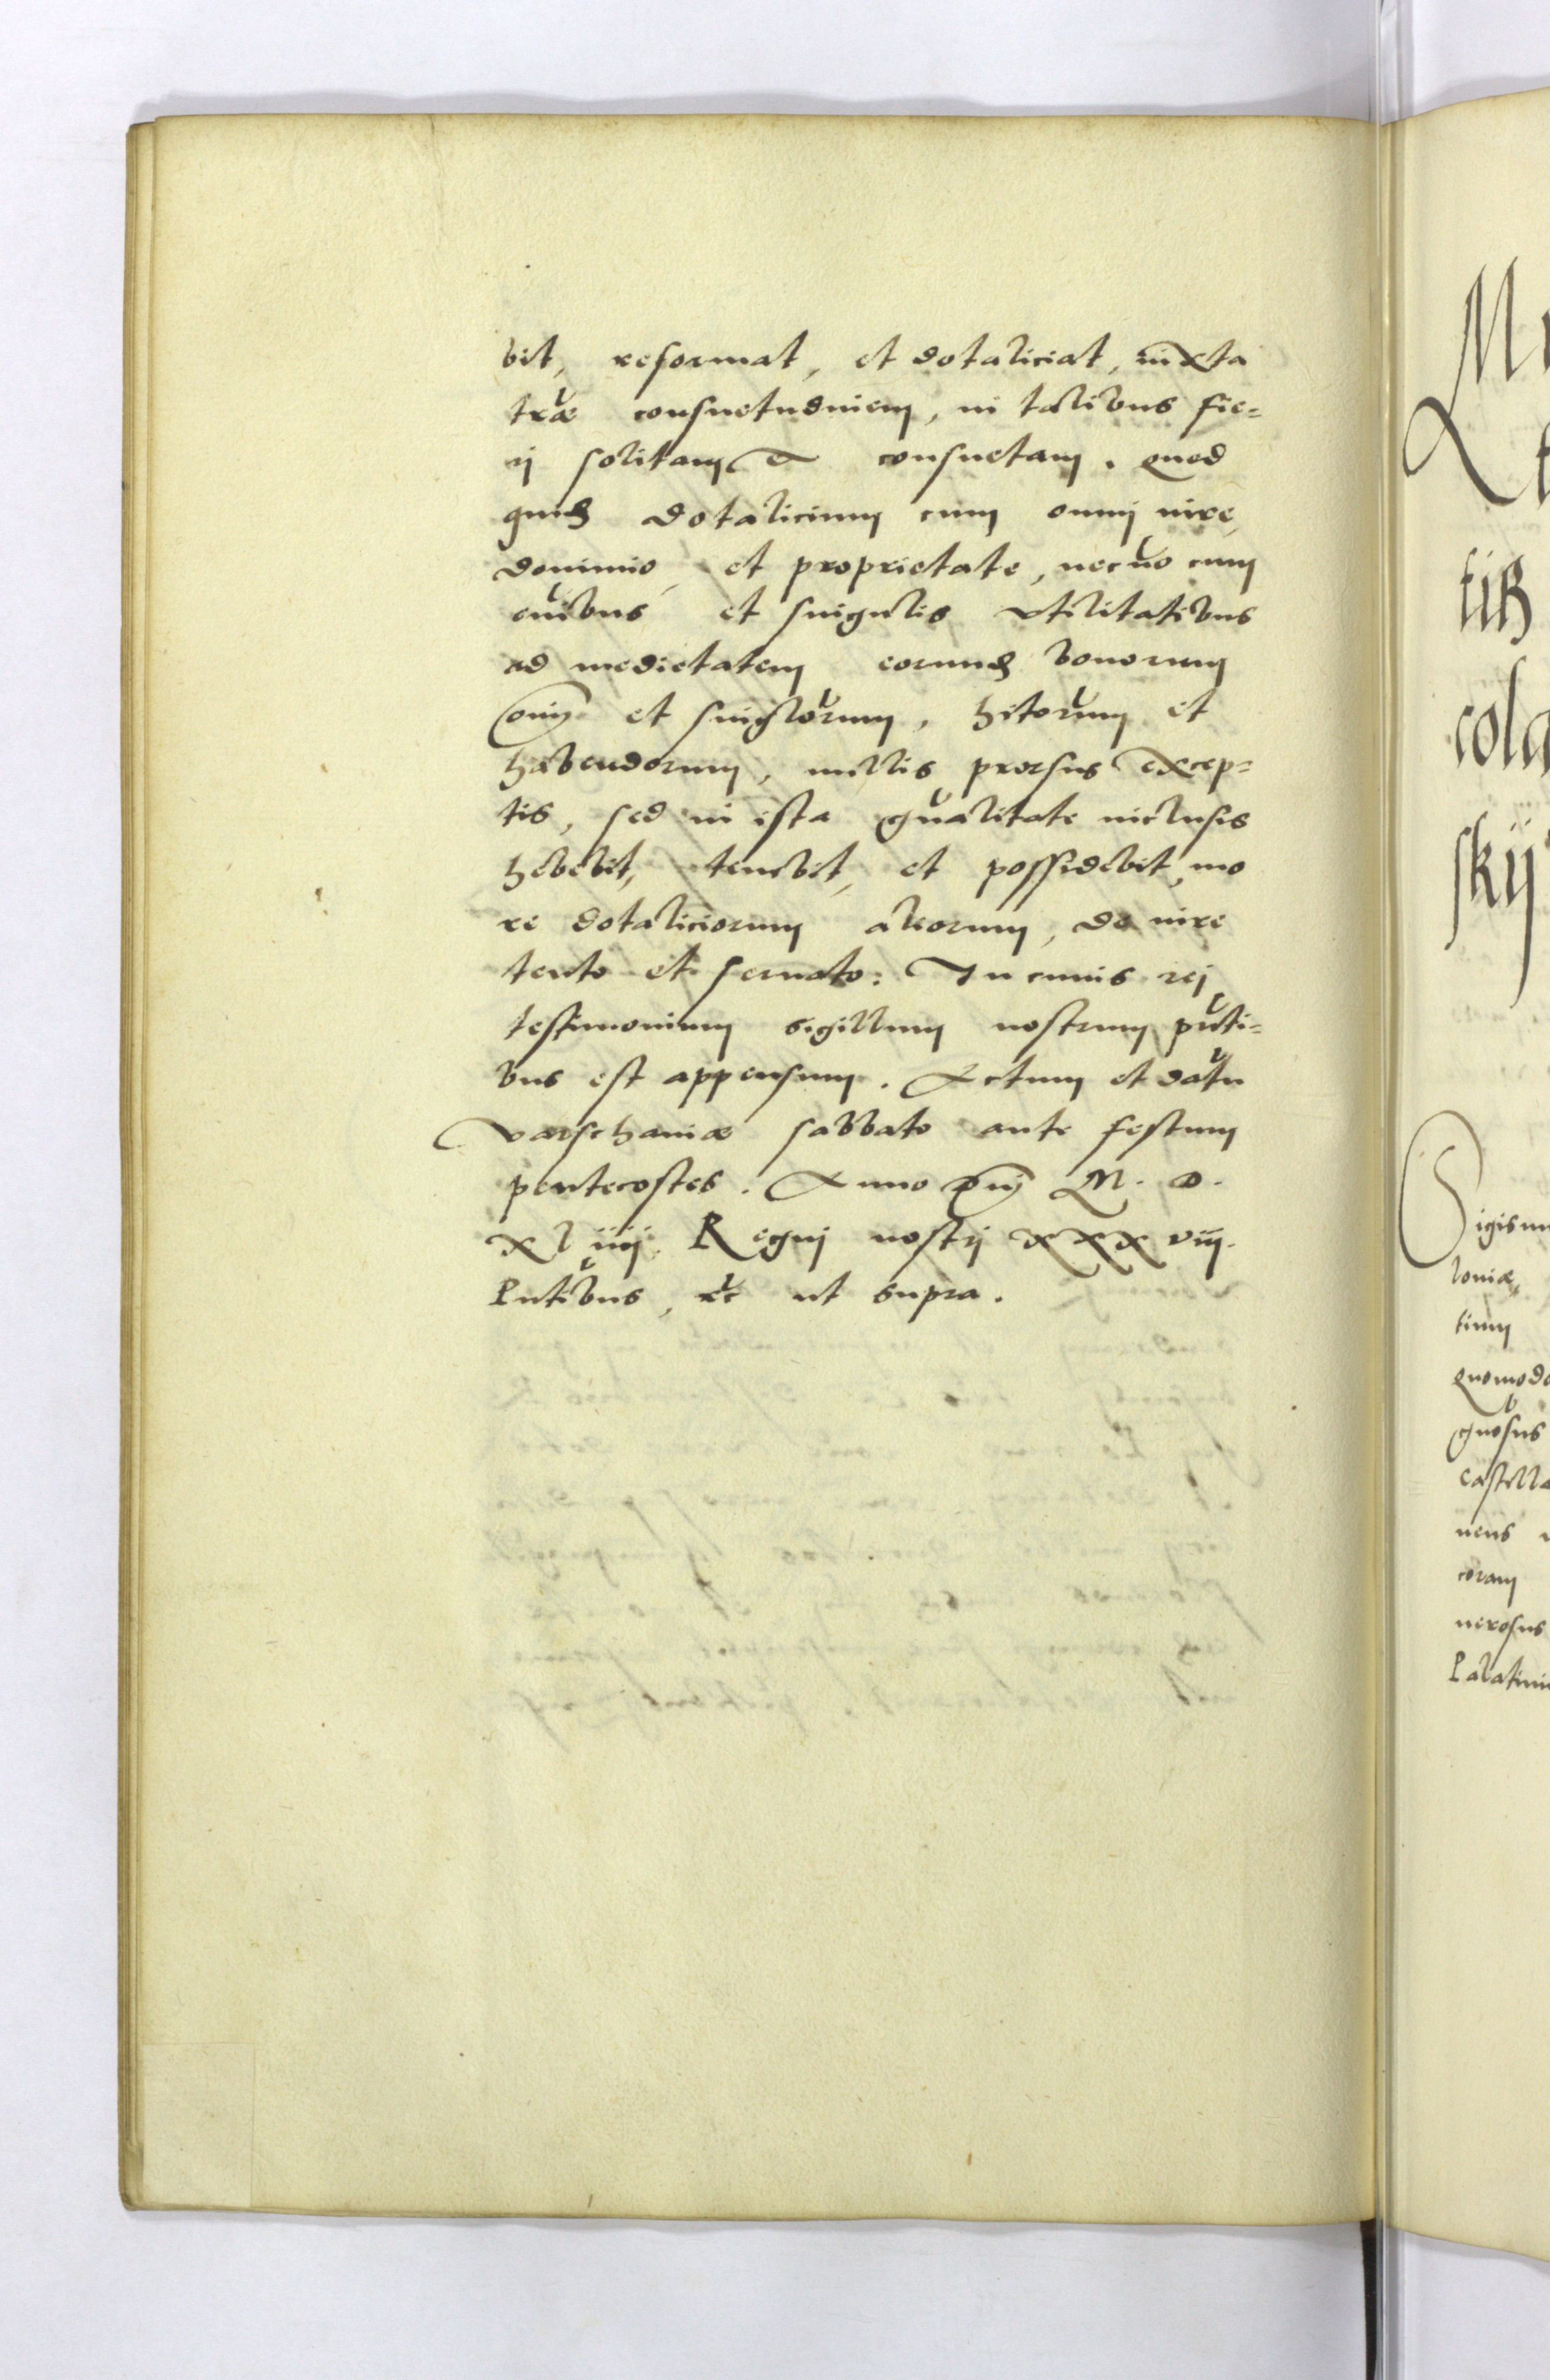 bit, reformat, et dotaliciat, iuxta
træ consuetudinem, in talibus fie=
rj solitam et consuetam. Quod
quid dotalicium cum omnj iure,
dominio, et proprietate, necno cum
onibus et singulis vtilitatibus
ad medietatem eorund bonorum
oim et singlorum, hitorum et
habendorum, nullis prorsus excep=
tis, sed in ista qualitate inclusis
hebebit, tenebit, et possidebit, mo
re dotaliciorum aliorum, de iure
tento et seruato: In cuius rej
testimonium sigillum nostrum pnti=
bus est appensum. Actum et datu
Varschauiæ sabbato ante festum
pentecostes. Anno Dnj M. D.
XL iiij. Regnj nostrj XXX viij.
Pntibus, etc ut supra.
cola
skij
Sigism
loniæ,
tium
Quomodo
gnosus
castella
nens
coram
nerosus
Palatini